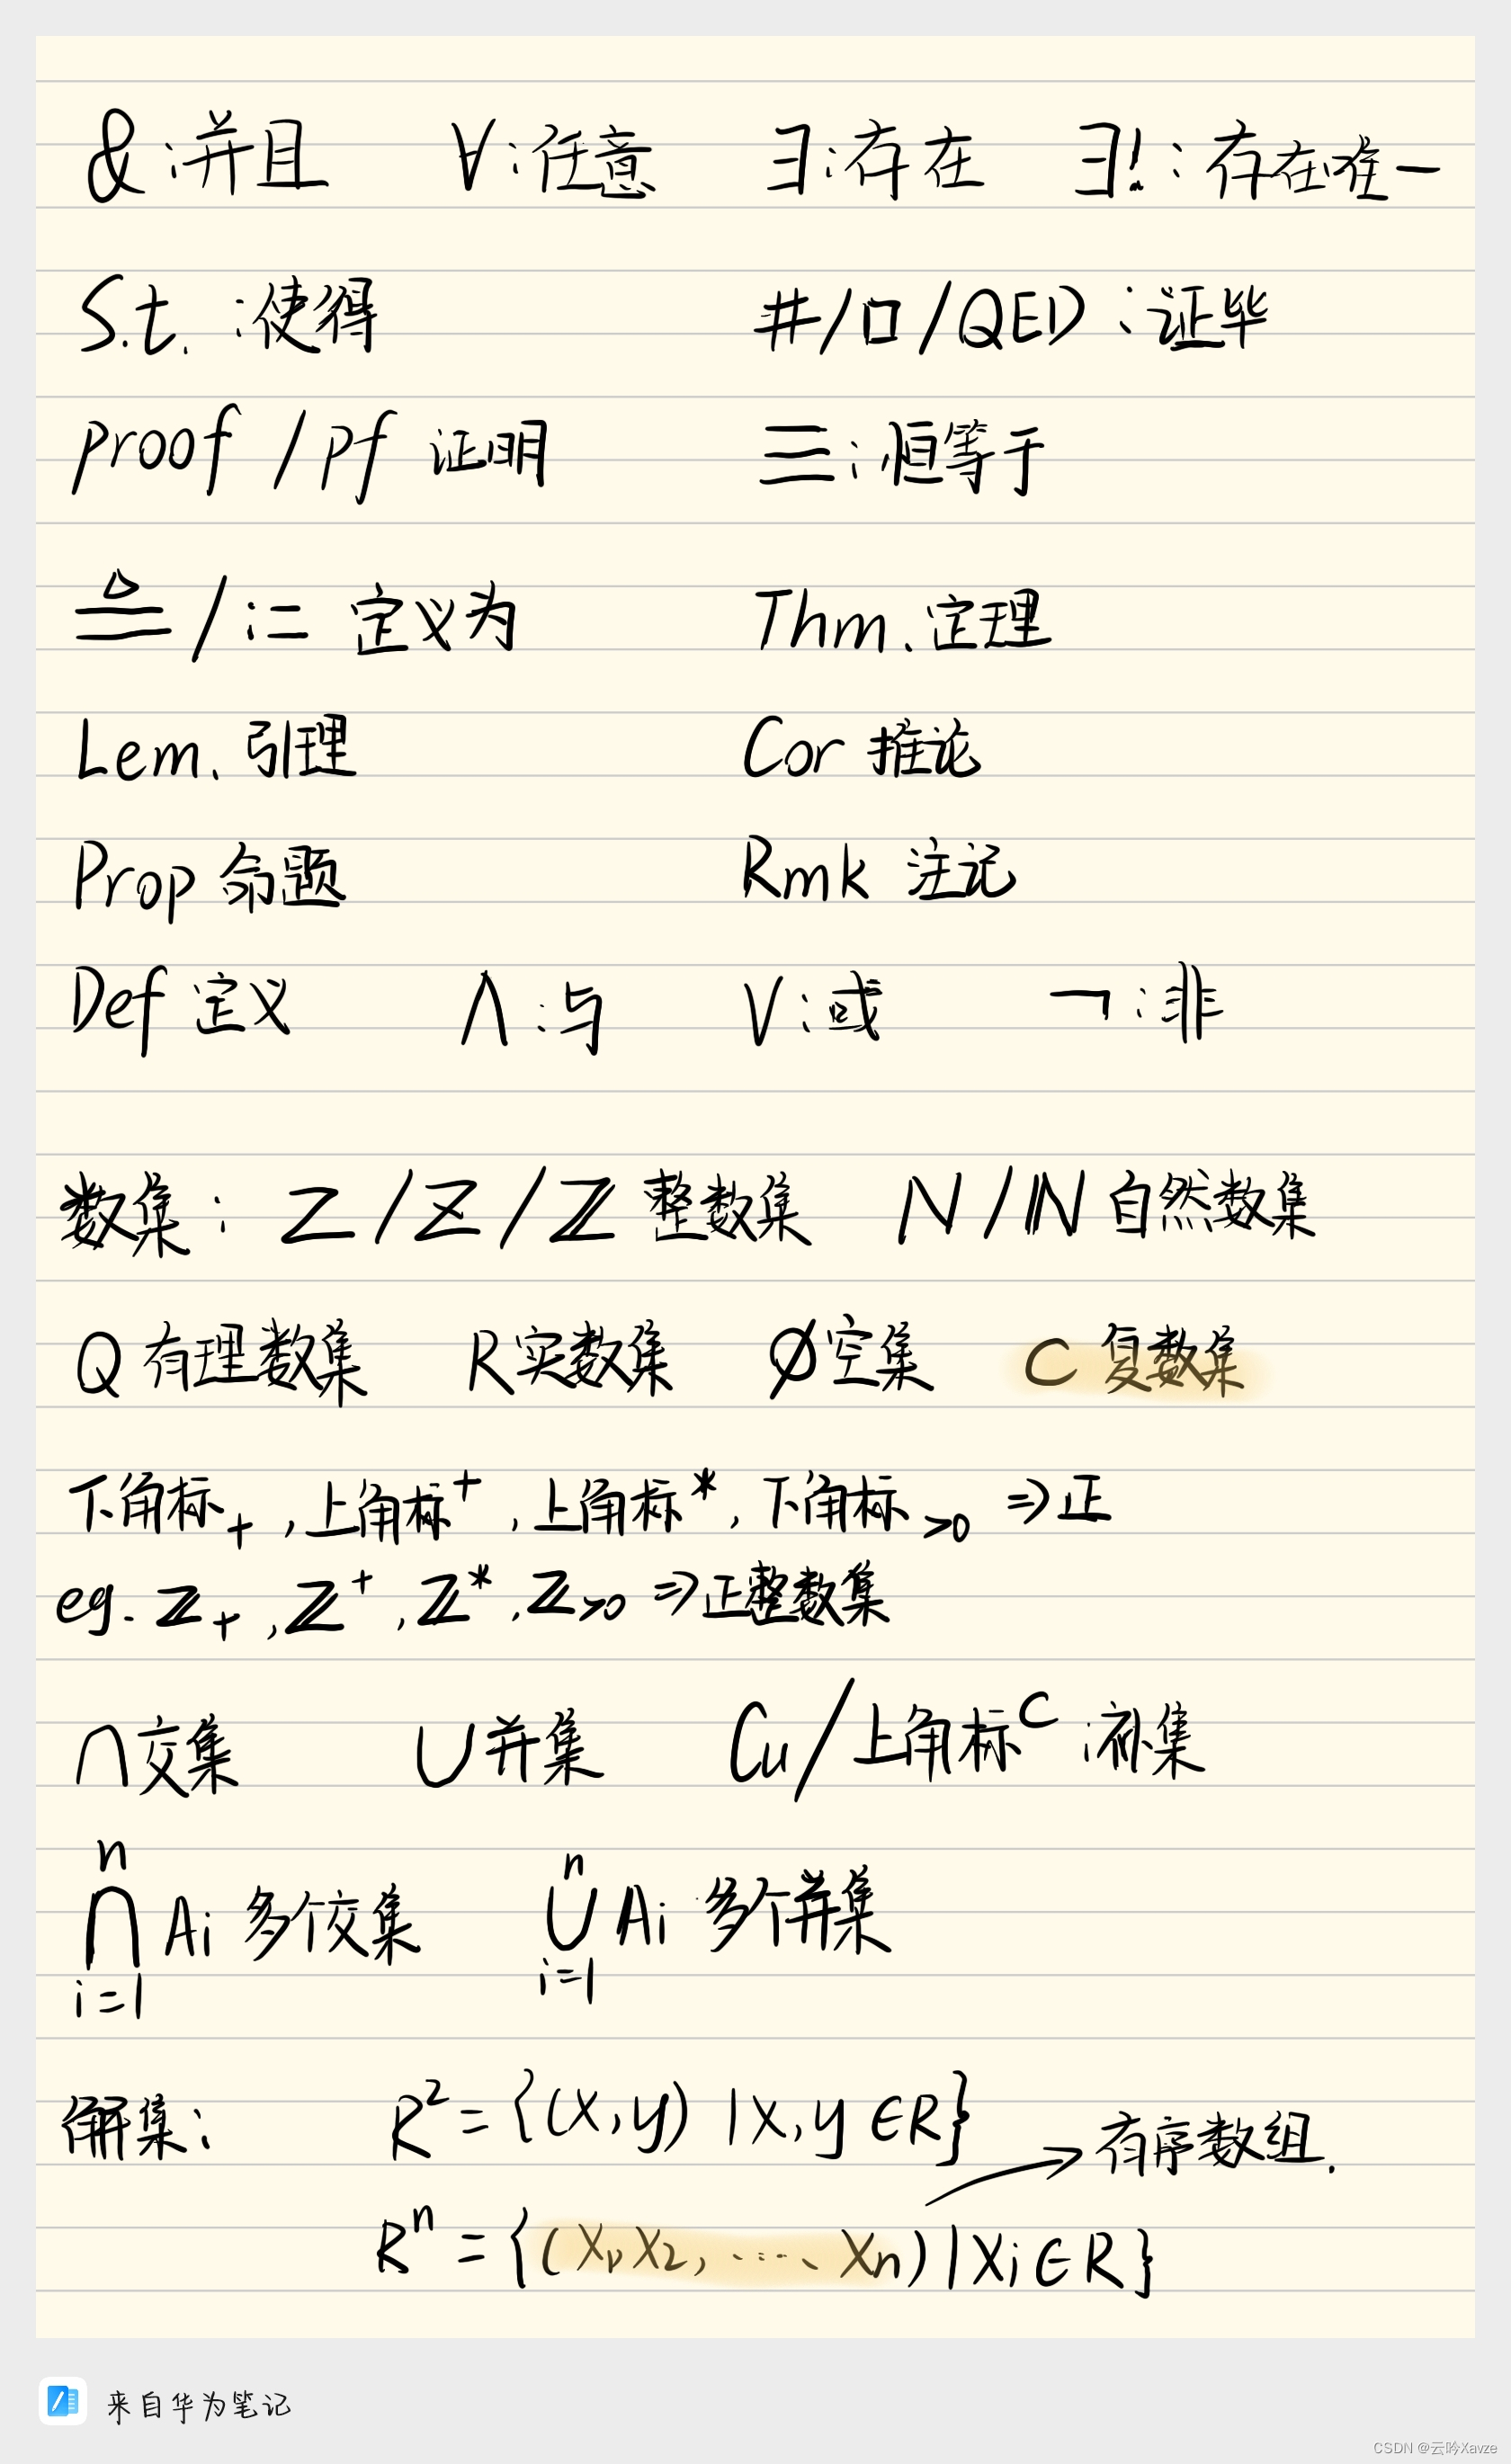 &:并且 ∀:任意 ∃:存在 ∃!:存在唯一
S.t. :使得 #/口/QED:证毕
proof/pf 证明 ≡:恒等于
≜/:= 定义为 Thm.定理
Lem.引理 Cor 推论
Prop 命题 Rmk 注记
Def 定义 ∧:与 ∨:或 ¬:非
数集: Z/Z/ℤ 整数集 N/ℕ 自然数集
Q 有理数集 R实数集 ∅空集 C 复数集
下角标₊,上角标⁺,上角标*,下角标>0 ⇒正
eg. ℤ₊,ℤ⁺,ℤ*,ℤ>0 ⇒正整数集
∩交集 ∪并集 Cu/上角标ᶜ:补集
n
∩ Ai 多个交集
i=1
n
∪ Ai 多个并集
i=1
解集: R²={(x,y)|x,y∈R}
有序数组.
Rⁿ={(x₁,x₂,……、xn)|xi∈R}
来自华为笔记
CSDN @云吟Xavze